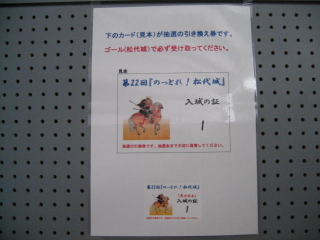 下のカード(見本)が抽選の引き換え券です。
ゴール(松代城)で必ず受け取ってください。
見本
第22回『のっとれ!松代城』
入城の証
1
抽選の引換券です。抽選会まで大切に保管してください。
第22回『のっとれ!松代城』
入城の証
1